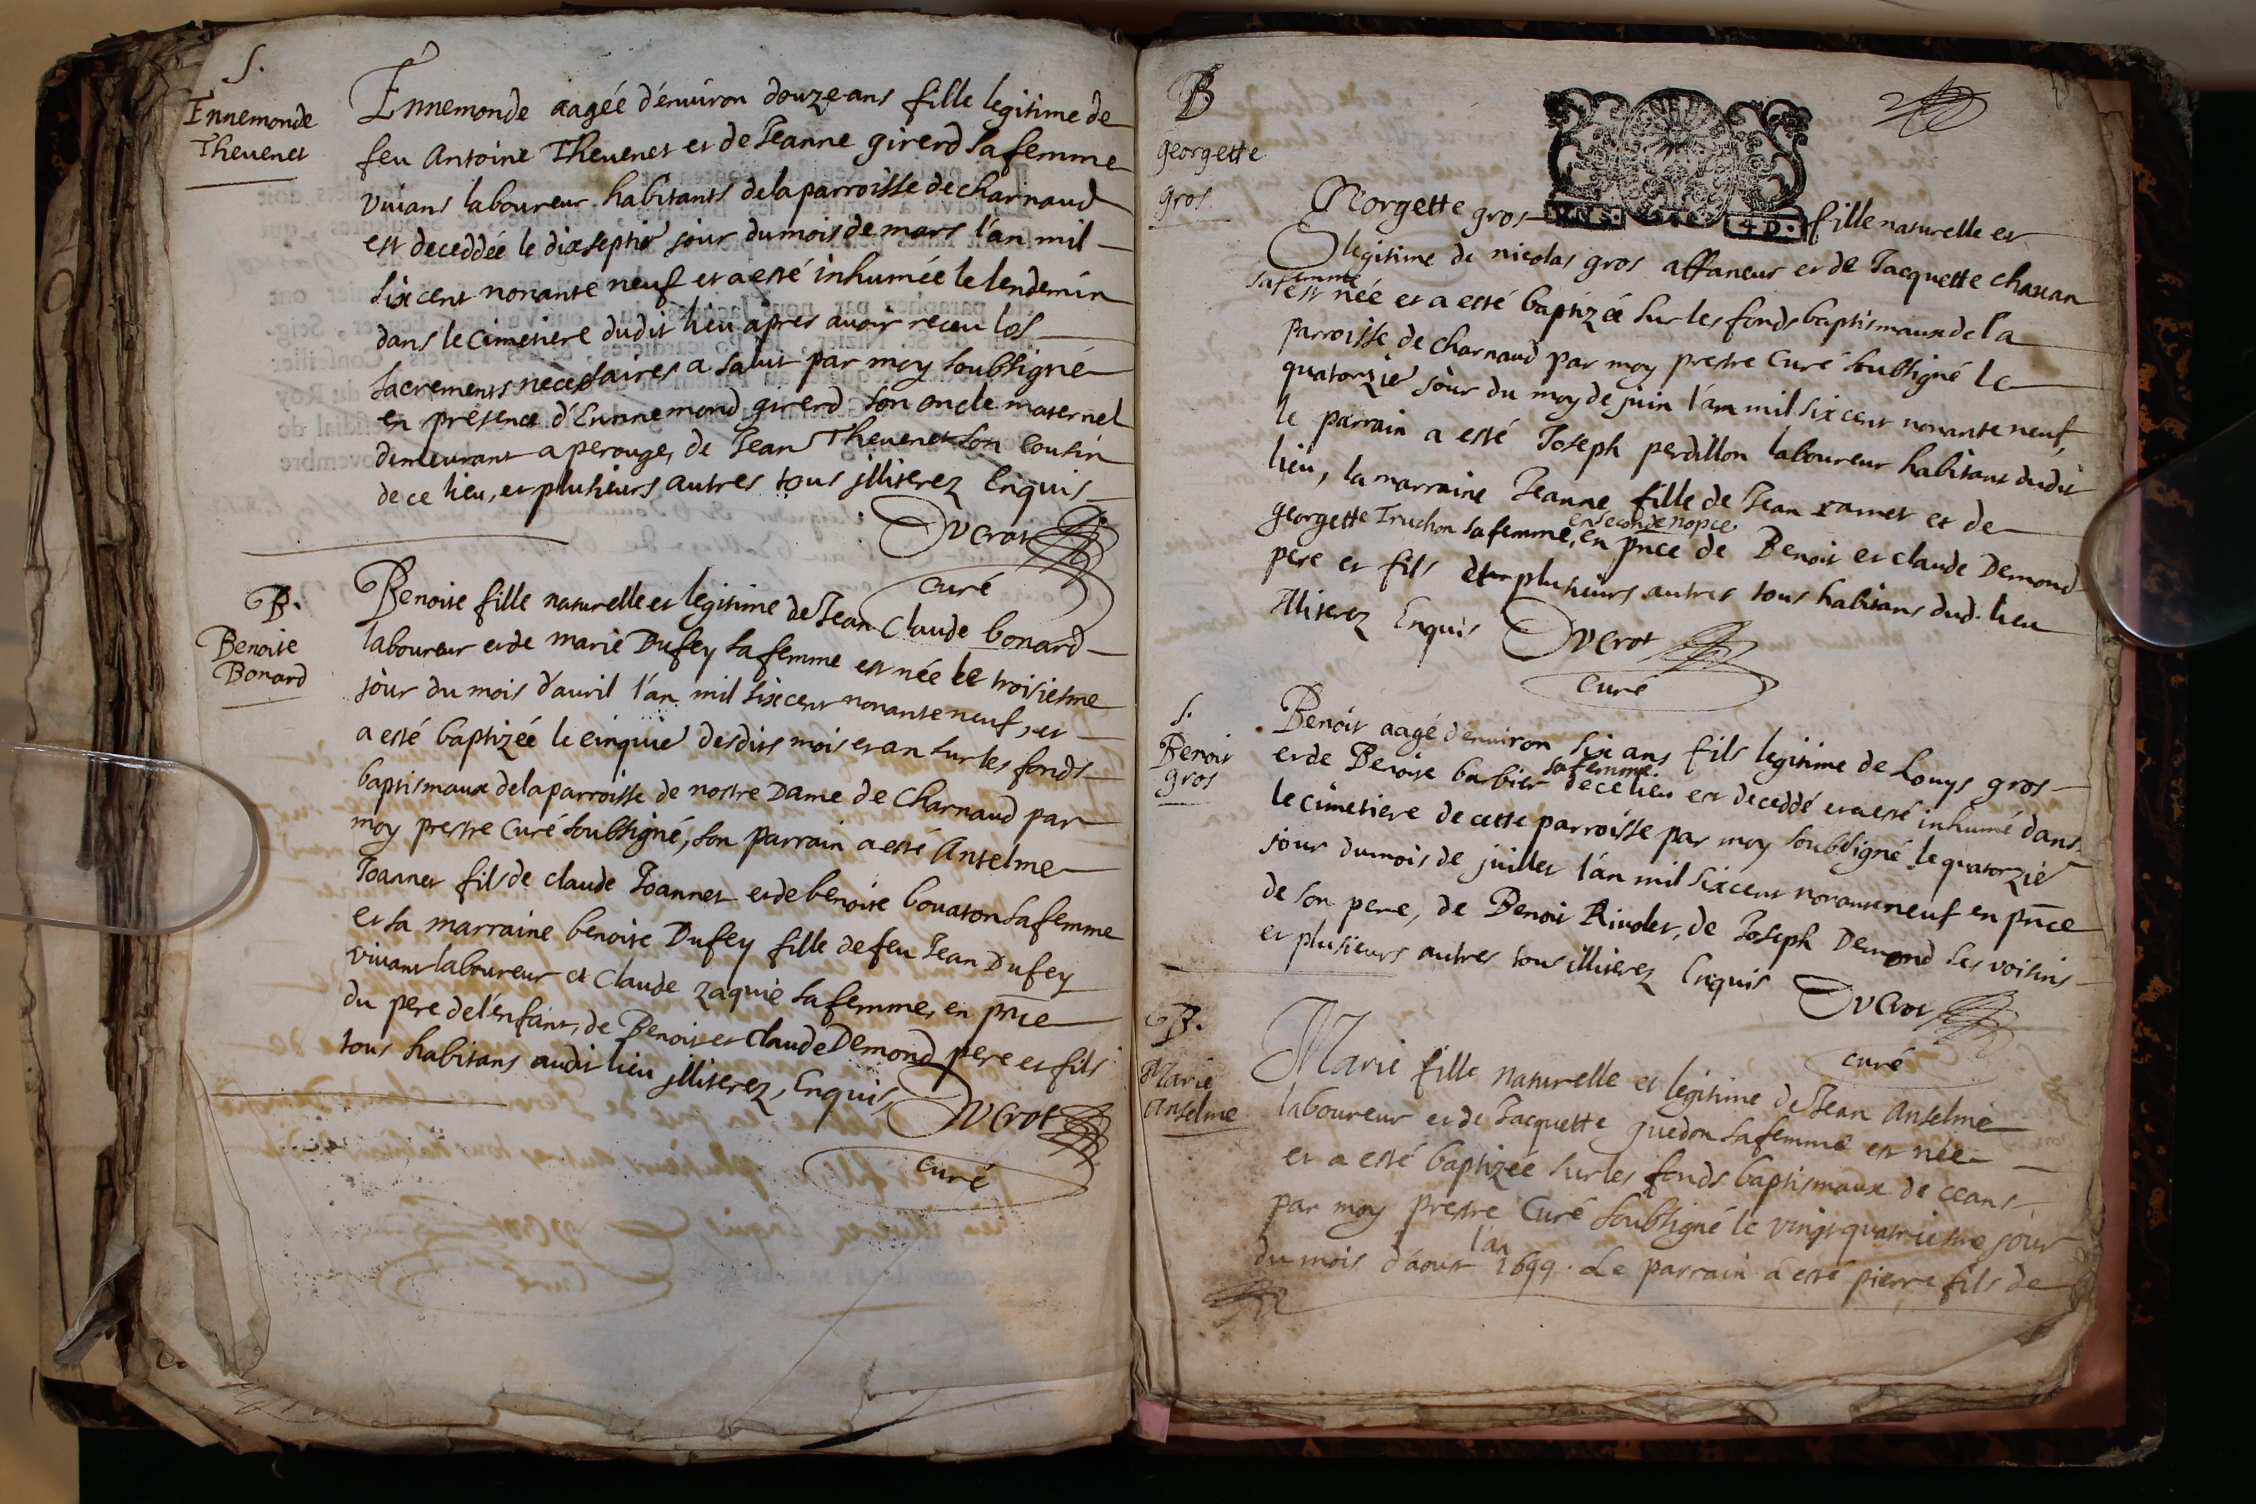 S.
Ennemonde
Thevenet
Ennemonde aagée d'environ douze ans fille legitime de
feu Antoine Thevenet et de Jeanne girerd sa femme
vivans laboureur habitants de la parroisse de charnaud
est deceddée le dixseptie jour du mois de mars l'an mil
six cent nonante neuf et a esté inhumée le lendemin
dans le cimetiere dudit lieu apres avoir receu les
sacrements necessaires a salut par moy soubsigné
en presence d'Ennemond girerd son oncle maternel
demeurant a perouge, de Jean Thevenet son cousin
de ce lieu, et plusieurs autres tous illiterez Enquis
Ducrot
curé
B.
Benoite
Bonard
Benoite fille naturelle et legitime de Jean Claude bonard
laboureur et de marie Dufey sa femme est née le troisiesme
jour du mois d'avril l'an mil six cent nonante neuf, et
a esté baptizée le cinquie desdits mois et an sur les fonds
baptismaux de la parroisse de nostre Dame de Charnaud par
moy prestre Curé soubsigné, son parrain a esté Antelme
Joannet fils de claude Joannet et de benoite bovaton sa femme
et sa marraine benoite Dufey fille de feu Jean Dufey
vivant laboureur et Claude zaquie sa femme, en pnce
du pere de l'enfant, de Benoit et Claude Demond pere et fils
tous habitans audit lieu illiterez, Enquis
Ducrot
curé
B
georgette
gros
VNS. 4 D.
Georgette gros fille naturelle et
legitime de nicolas gros affaneur et de Jacquette chavan
sa femme
est née et a esté baptizée sur les fonds baptismaux de la
parroisse de charnaud par moy prestre Curé soubsigné le
quatorzie jour du moy de juin l'an mil six cent nonante neuf,
le parrain a esté Joseph perdillon laboureur habitant dudit
lieu, la marraine Jeanne fille de Jean ramet et de
en seconde nopce
georgette Truchon sa femme, en pnce de Benoit et claude Demond
pere et fils et plusieurs autres tous habitans dud. lieu
Illiterez Enquis Ducrot
curé
S.
Benoit
gros
Benoit aagé d'environ six ans fils legitime de Louys gros
sa femme
et de Benoite barbier de ce lieu est deceddé et a esté inhumé dans
le cimetiere de cette parroisse par moy soubsigné le quatorzie
jour du mois de juillet l'an mil six cent nonante neuf en pnce
de son pere, de Benoit Rivolet, de Joseph Demond ses voisins
et plusieurs autres tous illiterez Enquis Ducrot
curé
B.
Marie
Anselme
Marie fille naturelle et legitime de Jean Anselme
laboureur et de Jacquette guedon sa femme est née
et a esté baptizée sur les fonds baptismaux de ceans
par moy prestre Curé soubsigné le vingt quatriesme jour
l'an
du mois d'aout 1699. Le parrain a esté pierre fils de